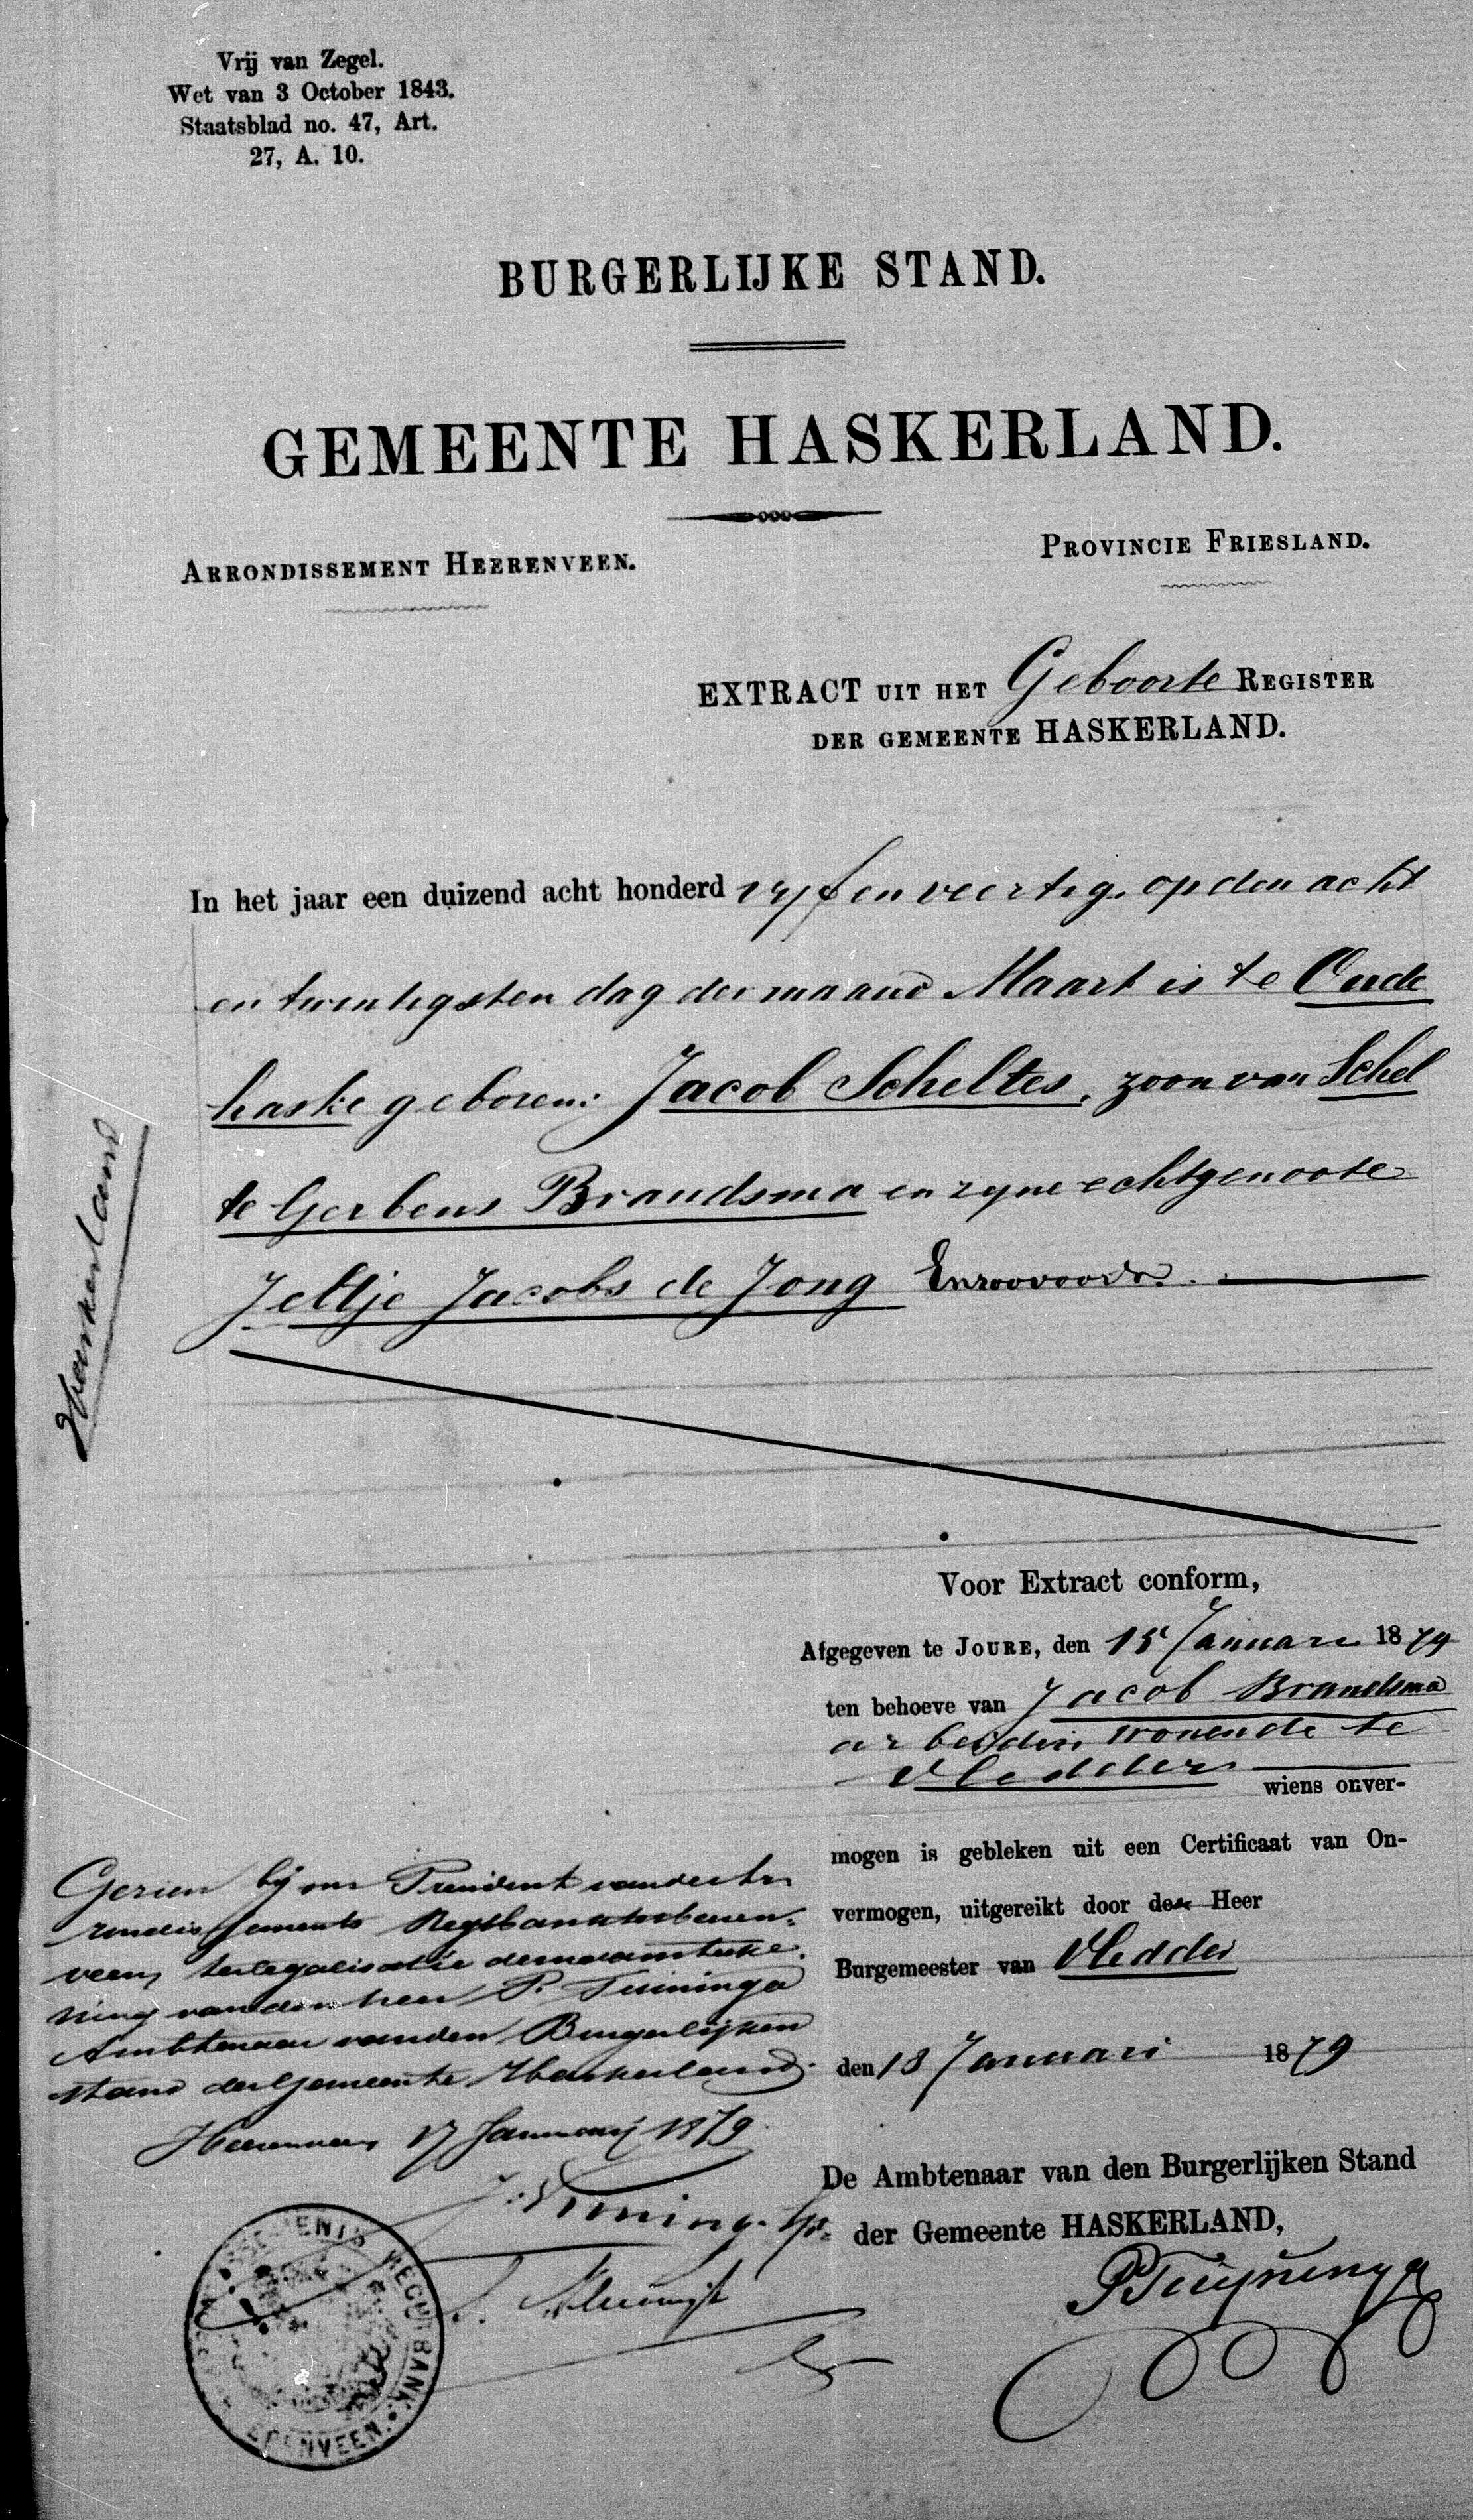 Vrij van Zegel.
Wet van 3 October 1843.
Staatsblad no. 47, Art.
27, A. 10.
BURGERLIJKE STAND.
GEMEENTE HASKERLAND.
ARRONDISSEMENT HEERENVEEN.
PROVINCIE FRIESLAND.
EXTRACT UIT HET Geboorte REGISTER
DER GEMEENTE HASKERLAND.
In het jaar een duizend acht honderd vyf en veertig, op den acht
en twintigsten dag der maand Maart is te Oude
haske geboren: Jacob Scheltes, zoon van Schel
te Gerbens Brandsma en zyne echtgenoote
Jeltje Jacobs de Jong Enzoovoorts.
Haskerland
Voor Extract conform,
Afgegeven te JOURE, den 15 Januari 1879
ten behoeve van Jacob Brandsma
arbeider, wonende te
Vledder
wiens onver-
mogen is gebleken uit een Certificaat van On-
vermogen, uitgereikt door den Heer
Burgemeester van Vledder
den 13 Januari 1879
De Ambtenaar van den Burgerlijken Stand
der Gemeente HASKERLAND,
PTuyninga
Gezien bij ons President van de Ar
rondissements Regtbank te Heeren-
veen, ter legalisatie der naamteeke-
ning van den heer P. Tuininga
Ambtenaar van den Burgerlijken
stand der Gemeente Haskerland.
Heerenveen 17 Januarij 1879
RECHTBANK